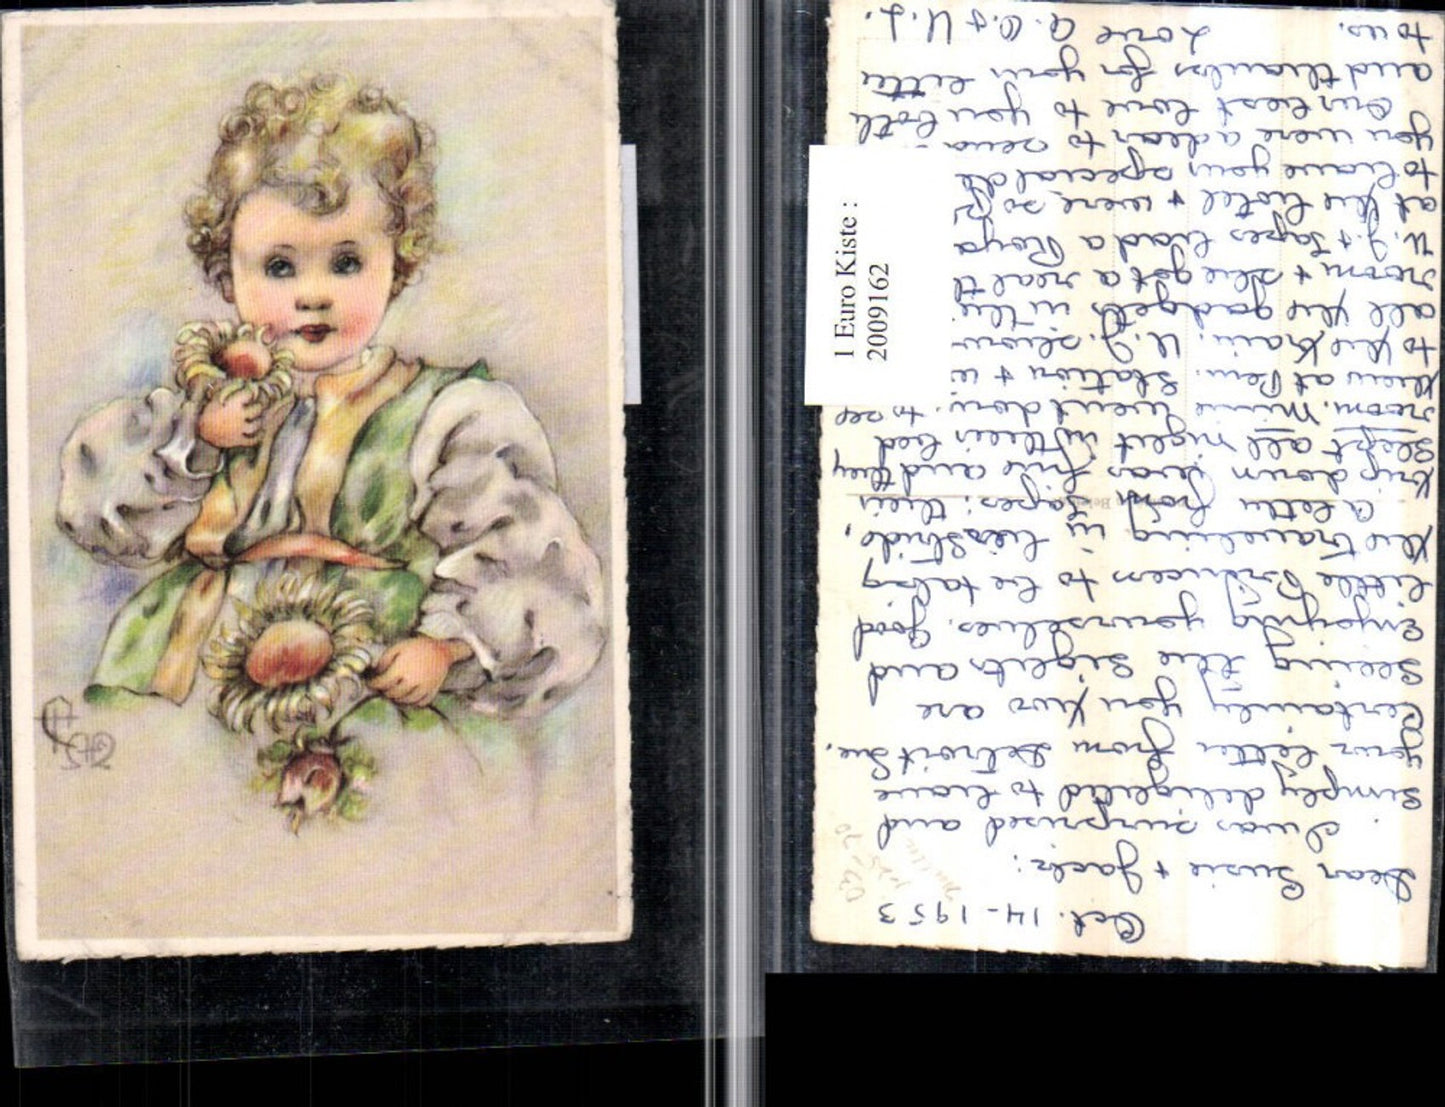 1 Euro Kiste :
2009162
Oct. 14-1953
Dear Susie + Jack:
I was surprised and
simply delighted to have
your letter from Detroit Sue.
Certainly you two are
seeing the sights and
enjoying yourselves. Good
little Princess to be taking
the traveling in her stride,
a letter from Japes: their
trip down was fine and they
slept all night in their bed
room. Mimi went down to see
them at Penn. Station +
to the train. U.J. show
all the gadgets in the
room + she got a real th
U.J. + Japes had a Roya
at the hotel + were so
to have your special de
you were a dear to send
Our best love to you both
and thanks for your letter
to us. Love A.D. + U.J.